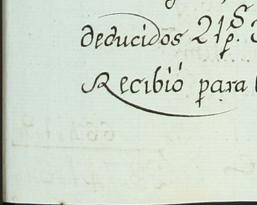 deducidos 21 p.s
Recibió para